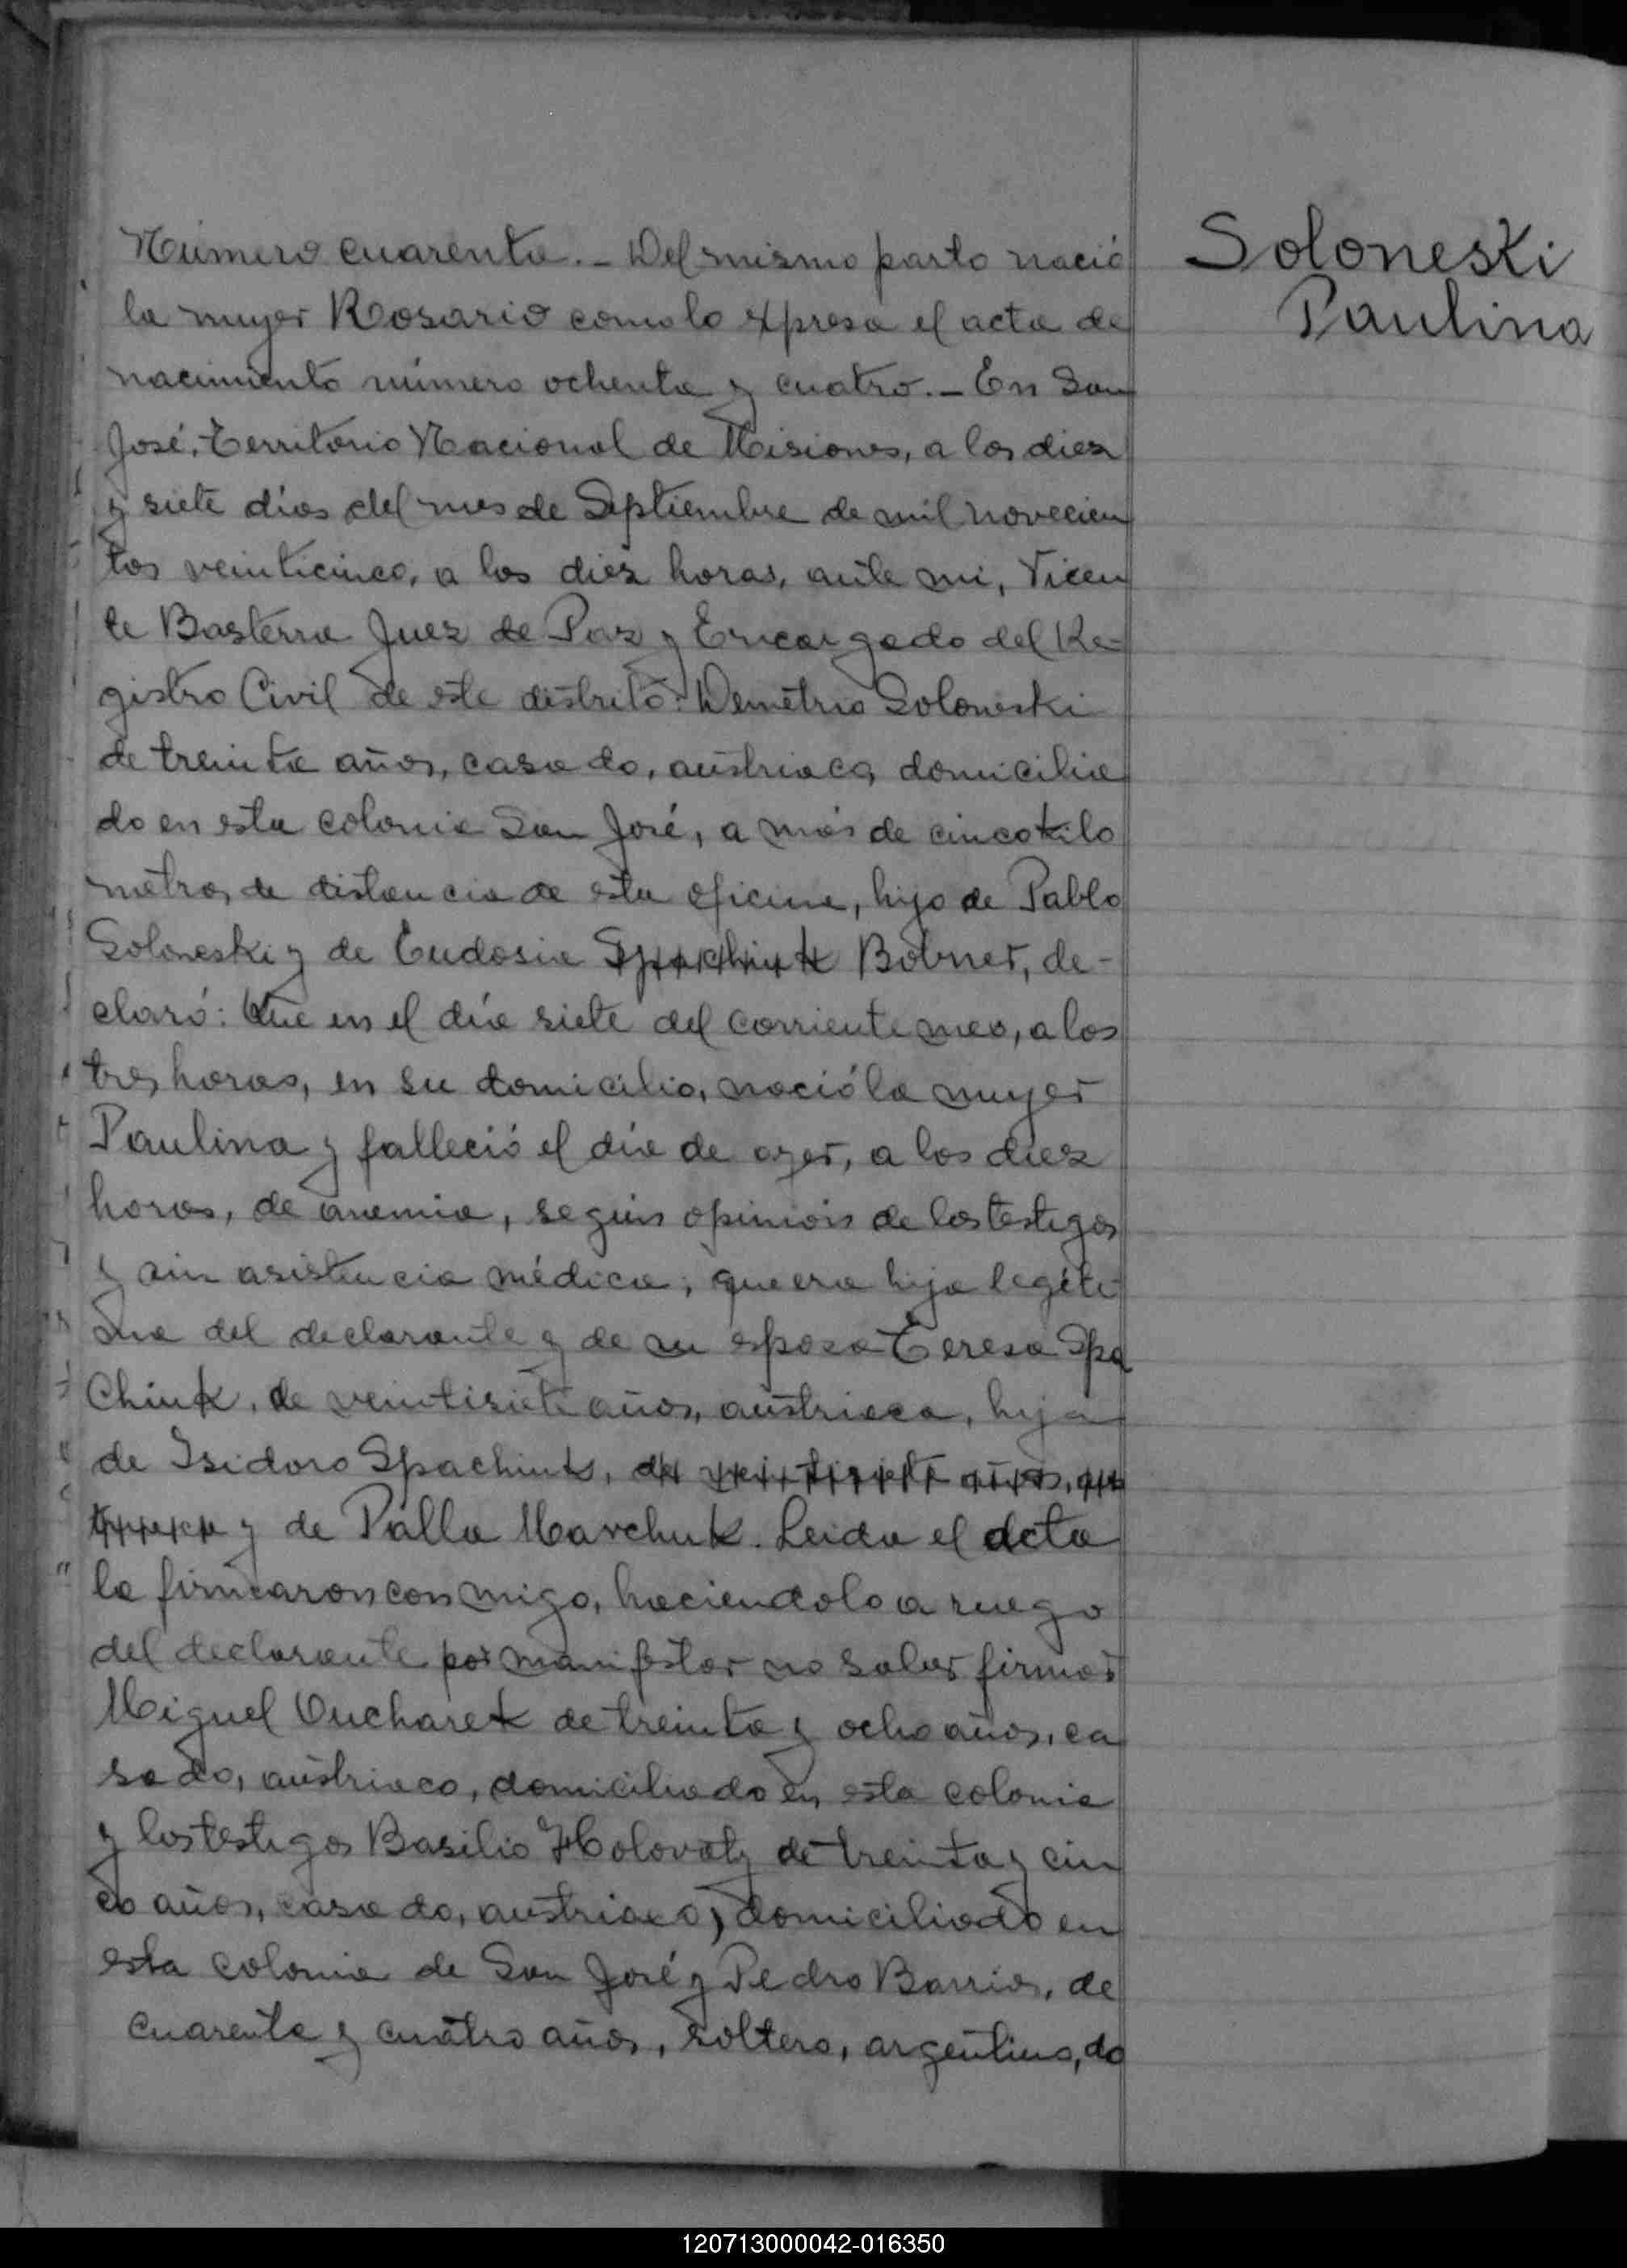 Soloneski
Paulina
Número cuarenta._ Del mismo parto nació
la mujer Rosario como lo expresa el acta de
nacimiento número ochenta y cuatro._ En San
José, Territorio Nacional de Misiones, a los diez
y siete días del mes de Septiembre de mil novecien
tos veinticinco, a las diez horas, ante mi, Vicen
te Basterra Juez de Paz y Encargado del Re-
gistro Civil de este distrito: Demetrio Soloneski
de treinta años, casado, austriaco, domicilia
do en esta colonia San José, a más de cinco kilo
metros de distancia de esta oficina, hijo de Pablo
Soloneski y de Eudosia Spachiuk Bobner, de-
claró: Que en el día siete del corriente mes, a las
tres horas, en su domicilio, nació la mujer
Paulina y falleció el día de ayer, a las diez
horas, de anemia, según opinión de los testigos
y sin asistencia médica; que era hija legíti-
ma del declarante y de su esposa Teresa Spa
Chiuk, de veintisiete años, austriaca, hija
de Isidoro Spachiuk, de veintisiete años, aus
triaca y de Palla Marchuk. Leida el acta
la firmaron conmigo, haciendolo a ruego
del declarante por manifestar no saber firmar
Miguel Oucharek de treinta y ocho años, ca
sado, austriaco, domiciliado en esta colonia
y los testigos Basilio Holovaty de treinta y cin
co años, casado, austriaco, domiciliado en
esta colonia de San José y Pedro Barrios, de
cuarenta y cuatro años, soltero, argentino, do
120713000042-016350